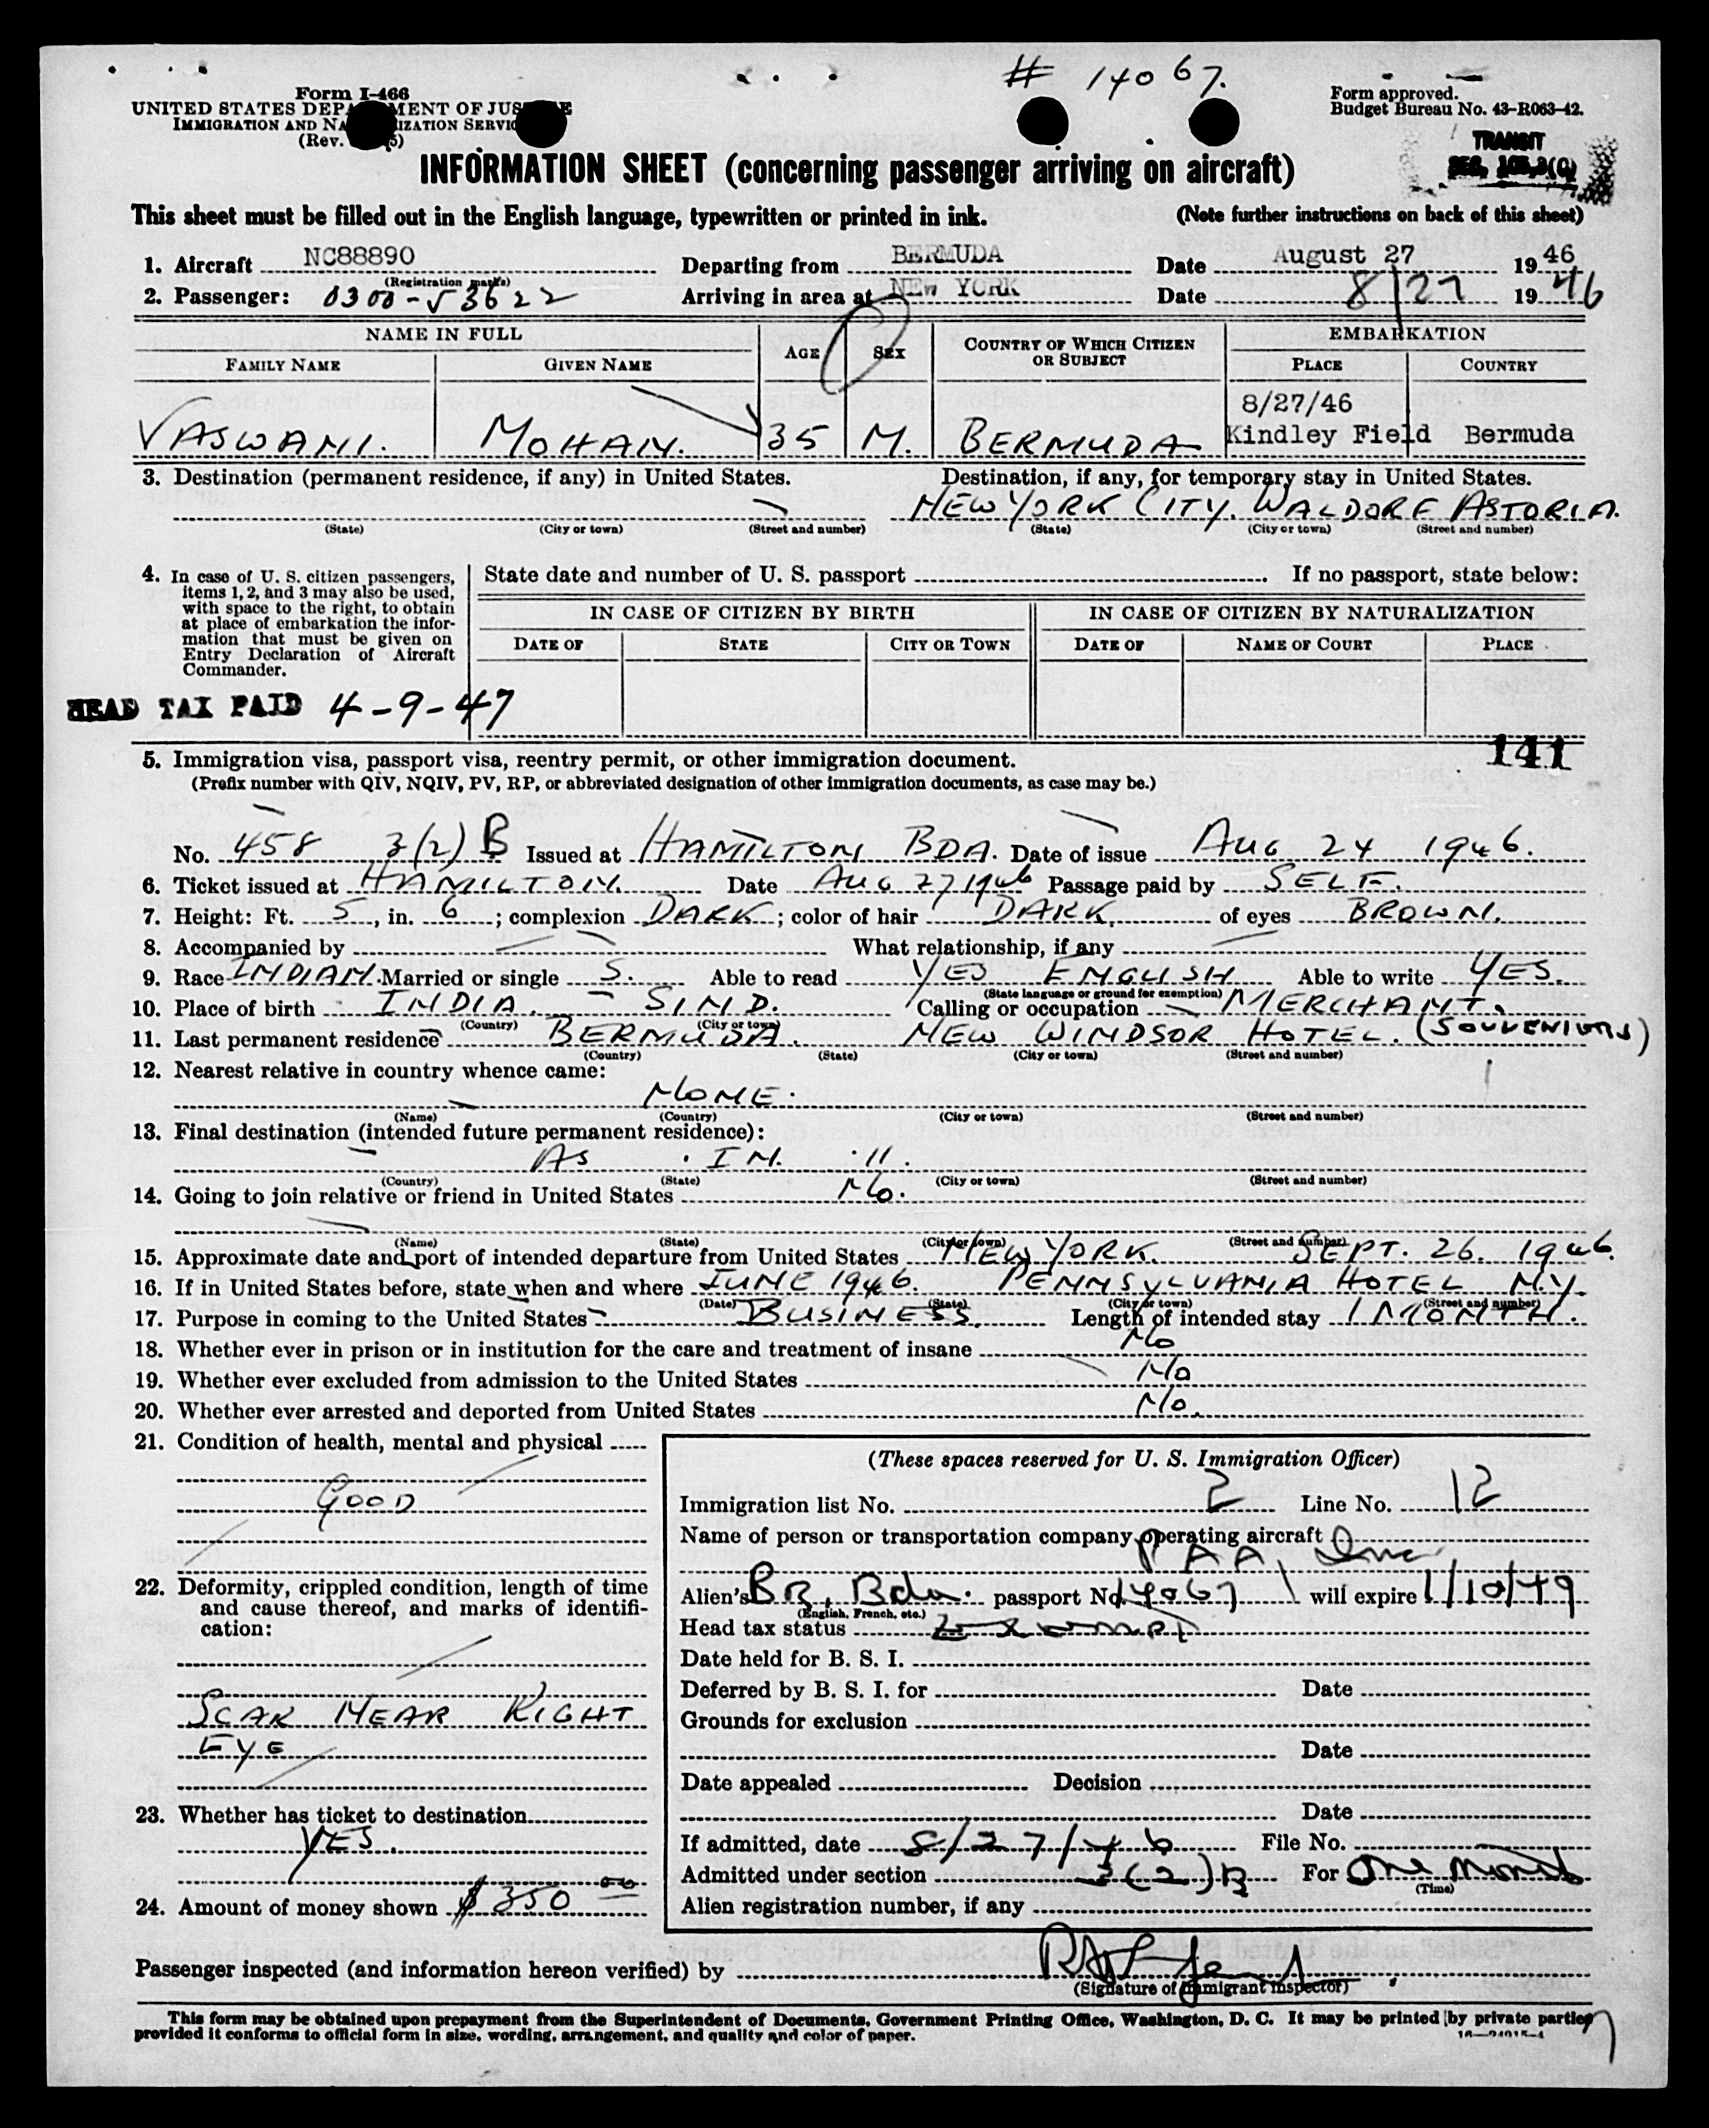 # 14067.
Form I-466
UNITED STATES DEPARTMENT OF JUSTICE
IMMIGRATION AND NATURALIZATION SERVICE
(Rev.
Form approved.
Budget Bureau No. 43-R063-42.
TRANSIT
INFORMATION SHEET (concerning passenger arriving on aircraft)
This sheet must be filled out in the English language, typewritten or printed in ink. (Note further instructions on back of this sheet)
1. Aircraft NC88890 Departing from BERMUDA Date August 27 1946
(Registration marks)
2. Passenger: 0300-53622 Arriving in area at NEW YORK Date 8/27 1946
NAME IN FULL AGE SEX COUNTRY OF WHICH CITIZEN OR SUBJECT EMBARKATION
FAMILY NAME GIVEN NAME PLACE COUNTRY
8/27/46
VASWANI. MOHAN. 35 M. BERMUDA Kindley Field Bermuda
3. Destination (permanent residence, if any) in United States. Destination, if any, for temporary stay in United States.
NEW YORK CITY. WALDORF ASTORIA.
(State) (City or town) (Street and number) (State) (City or town) (Street and number)
4. In case of U. S. citizen passengers, items 1, 2, and 3 may also be used, with space to the right, to obtain at place of embarkation the information that must be given on Entry Declaration of Aircraft Commander.
State date and number of U. S. passport If no passport, state below:
IN CASE OF CITIZEN BY BIRTH IN CASE OF CITIZEN BY NATURALIZATION
DATE OF STATE CITY OR TOWN DATE OF NAME OF COURT PLACE
HEAD TAX PAID 4-9-47
141
5. Immigration visa, passport visa, reentry permit, or other immigration document.
(Prefix number with QIV, NQIV, PV, RP, or abbreviated designation of other immigration documents, as case may be.)
No. 458 3(2) B Issued at HAMILTON BDA. Date of issue AUG 24 1946.
6. Ticket issued at HAMILTON. Date AUG 27 1946 Passage paid by SELF.
7. Height: Ft. 5, in. 6; complexion DARK; color of hair DARK. of eyes BROWN.
8. Accompanied by What relationship, if any
9. Race INDIAN. Married or single S. Able to read YES ENGLISH Able to write YES.
(State language or ground for exemption)
10. Place of birth INDIA. - SIND. Calling or occupation MERCHANT.
(Country) (City or town)
11. Last permanent residence BERMUDA. NEW WINDSOR HOTEL. (SOUVENIORS)
(Country) (State) (City or town) (Street and number)
12. Nearest relative in country whence came:
NONE.
(Name) (Country) (City or town) (Street and number)
13. Final destination (intended future permanent residence):
AS IN. 11.
(Country) (State) (City or town) (Street and number)
14. Going to join relative or friend in United States No.
(Name) (State) (City or town) (Street and number)
15. Approximate date and port of intended departure from United States NEW YORK. SEPT. 26. 1946.
16. If in United States before, state when and where JUNE 1946. PENNSYLVANIA HOTEL NY.
(Date) (State) (City or town) (Street and number)
17. Purpose in coming to the United States BUSINESS. Length of intended stay 1 MONTH.
18. Whether ever in prison or in institution for the care and treatment of insane No
19. Whether ever excluded from admission to the United States No
20. Whether ever arrested and deported from United States No.
21. Condition of health, mental and physical
GOOD
22. Deformity, crippled condition, length of time and cause thereof, and marks of identification:
SCAR NEAR RIGHT
EYE
23. Whether has ticket to destination
YES.
24. Amount of money shown $350 00
(These spaces reserved for U. S. Immigration Officer)
Immigration list No. 2 Line No. 12
Name of person or transportation company operating aircraft
PAA, Inc
Alien's Br. Bda. passport No. 14067 will expire 1/10/49
(English, French, etc.)
Head tax status Exempt
Date held for B. S. I.
Deferred by B. S. I. for Date
Grounds for exclusion
Date
Date appealed Decision
Date
If admitted, date 8/27/46 File No.
Admitted under section 3(2)B For One Month
(Time)
Alien registration number, if any
Passenger inspected (and information hereon verified) by
(Signature of immigrant inspector)
This form may be obtained upon prepayment from the Superintendent of Documents, Government Printing Office, Washington, D. C. It may be printed by private parties
provided it conforms to official form in size, wording, arrangement, and quality and color of paper.